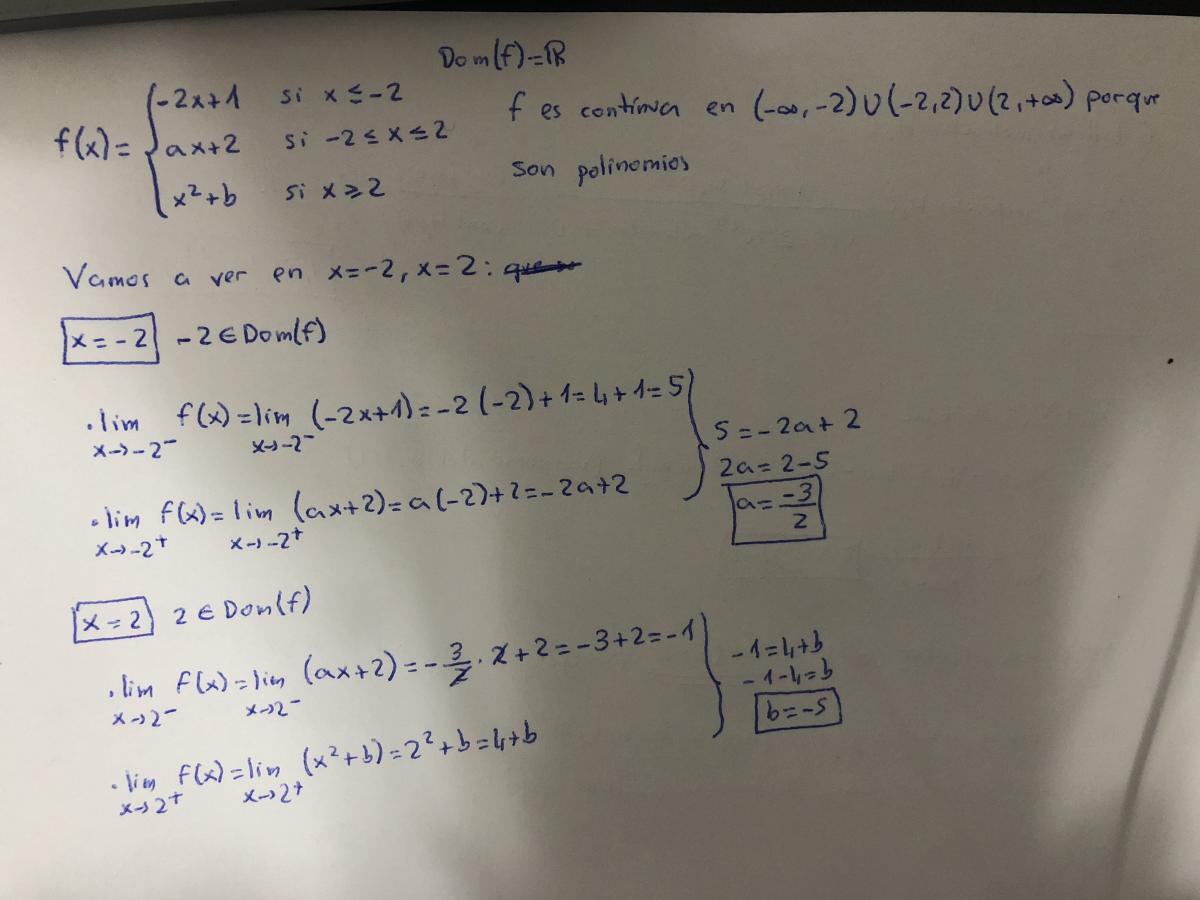 Dom(f)=ℝ
f(x)= { -2x+1 si x ≤ -2
ax+2 si -2 ≤ x ≤ 2
x²+b si x ⩾ 2
f es contínua en (-∞, -2) ∪ (-2,2) ∪ (2, +∞) porque
son polinomios
Vamos a ver en x=-2, x=2:
x = -2 -2 ∈ Dom(f)
· lim x→-2⁻ f(x) = lim x→-2⁻ (-2x+1) = -2(-2)+1 = 4+1 = 5
· lim x→-2⁺ f(x) = lim x→-2⁺ (ax+2) = a(-2)+2 = -2a+2
5 = -2a+2
2a = 2-5
a = -3/2
x = 2 2 ∈ Dom(f)
· lim x→2⁻ f(x) = lim x→2⁻ (ax+2) = -3/2 · 2+2 = -3+2 = -1
· lim x→2⁺ f(x) = lim x→2⁺ (x²+b) = 2²+b = 4+b
-1 = 4+b
-1-4 = b
b = -5